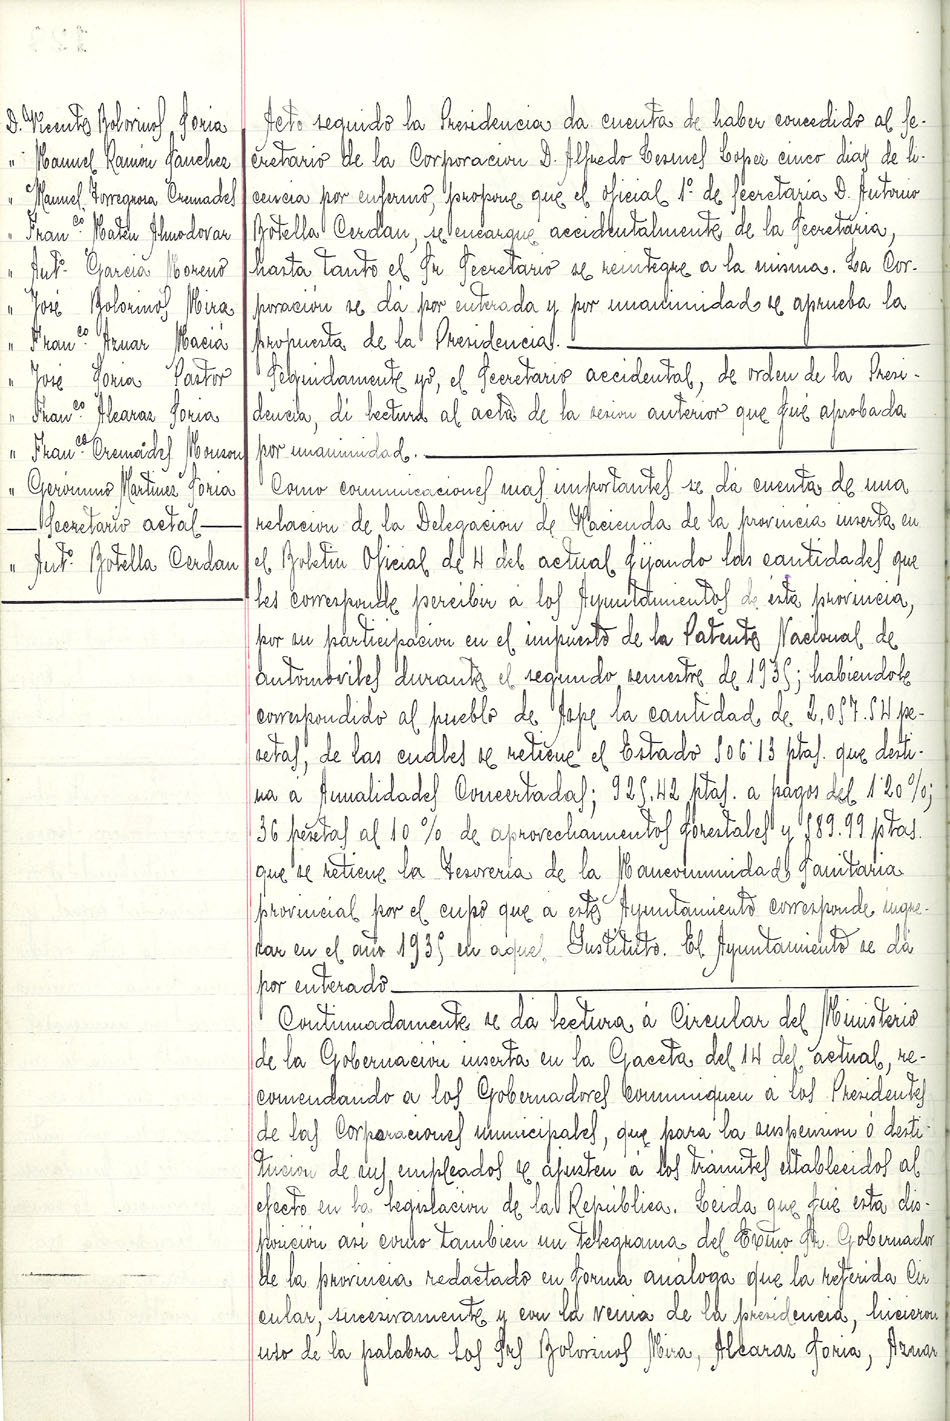 D. Vicente Bolorinos Soria
" Manuel Ramón Sanchez
" Manuel Torregrosa Cremades
" Fran.co Mateu Almodovar
" Ant.o Garcia Moreno
" José Bolorinos Mira
" Fran.co Aznar Maciá
" José Soria Pastor
" Fran.co Alcaraz Soria
" Fran.co Cremades Monzon
" Gerónimo Martinez Soria
Secretario actal
" Ant.o Botella Cerdan
Acto seguido la Presidencia da cuenta de haber concedido al Se-
cretario de la Corporacion D. Alfredo Lesmes Lopez cinco dias de li-
cencia por enfermo, propone que el oficial 1º de Secretaria D. Antonio
Botella Cerdan, se encargue accidentalmente de la Secretaria,
hasta tanto el Sr Secretario se reintegre a la misma. La Cor-
poración se dá por enterada y por unanimidad se aprueba la
propuesta de la Presidencia.
Seguidamente yo, el Secretario accidental, de orden de la Presi-
dencia, dí lectura al acta de la sesion anterior que fué aprobada
por unanimidad.
Como comunicaciones mas importantes se dá cuenta de una
relacion de la Delegacion de Hacienda de la provincia inserta en
el Boletin Oficial de 4 del actual fijando las cantidades que
les corresponde percibir a los Ayuntamientos de ésta provincia,
por su participacion en el impuesto de la Patente Nacional de
automoviles durante el segundo semestre de 1935; habiendole
correspondido al pueblo de Aspe la cantidad de 2,057.54 pe-
setas, de las cuales se retiene el Estado 506'13 ptas. que desti-
na a Anualidades Concertadas; 925.42 ptas. a pagos del 1'20%;
36 pesetas al 10% de aprovechamientos forestales y 589.99 ptas.
que se retiene la Tesoreria de la Mancomunidad Sanitaria
provincial por el cupo que a este Ayuntamiento corresponde ingre-
sar en el año 1935 en aquel Instituto. El Ayuntamiento se dá
por enterado
Continuadamente se da lectura á Circular del Ministerio
de la Gobernación inserta en la Gaceta del 14 del actual, re-
comendando a los Gobernadores comuniquen a los Presidentes
de las Corporaciones municipales, que para la suspension ó desti-
tucion de sus empleados se ajusten á los trámites establecidos al
efecto en la legislacion de la República. Leida que fué esta dis-
posición asi como tambien un telegrama del Exmo Sr. Gobernador
de la provincia redactado en forma análoga que la referida Cir
cular, sucesivamente y con la venia de la presidencia, hicieron
uso de la palabra los Srs Bolorinos Mira, Alcaraz Soria, Aznar